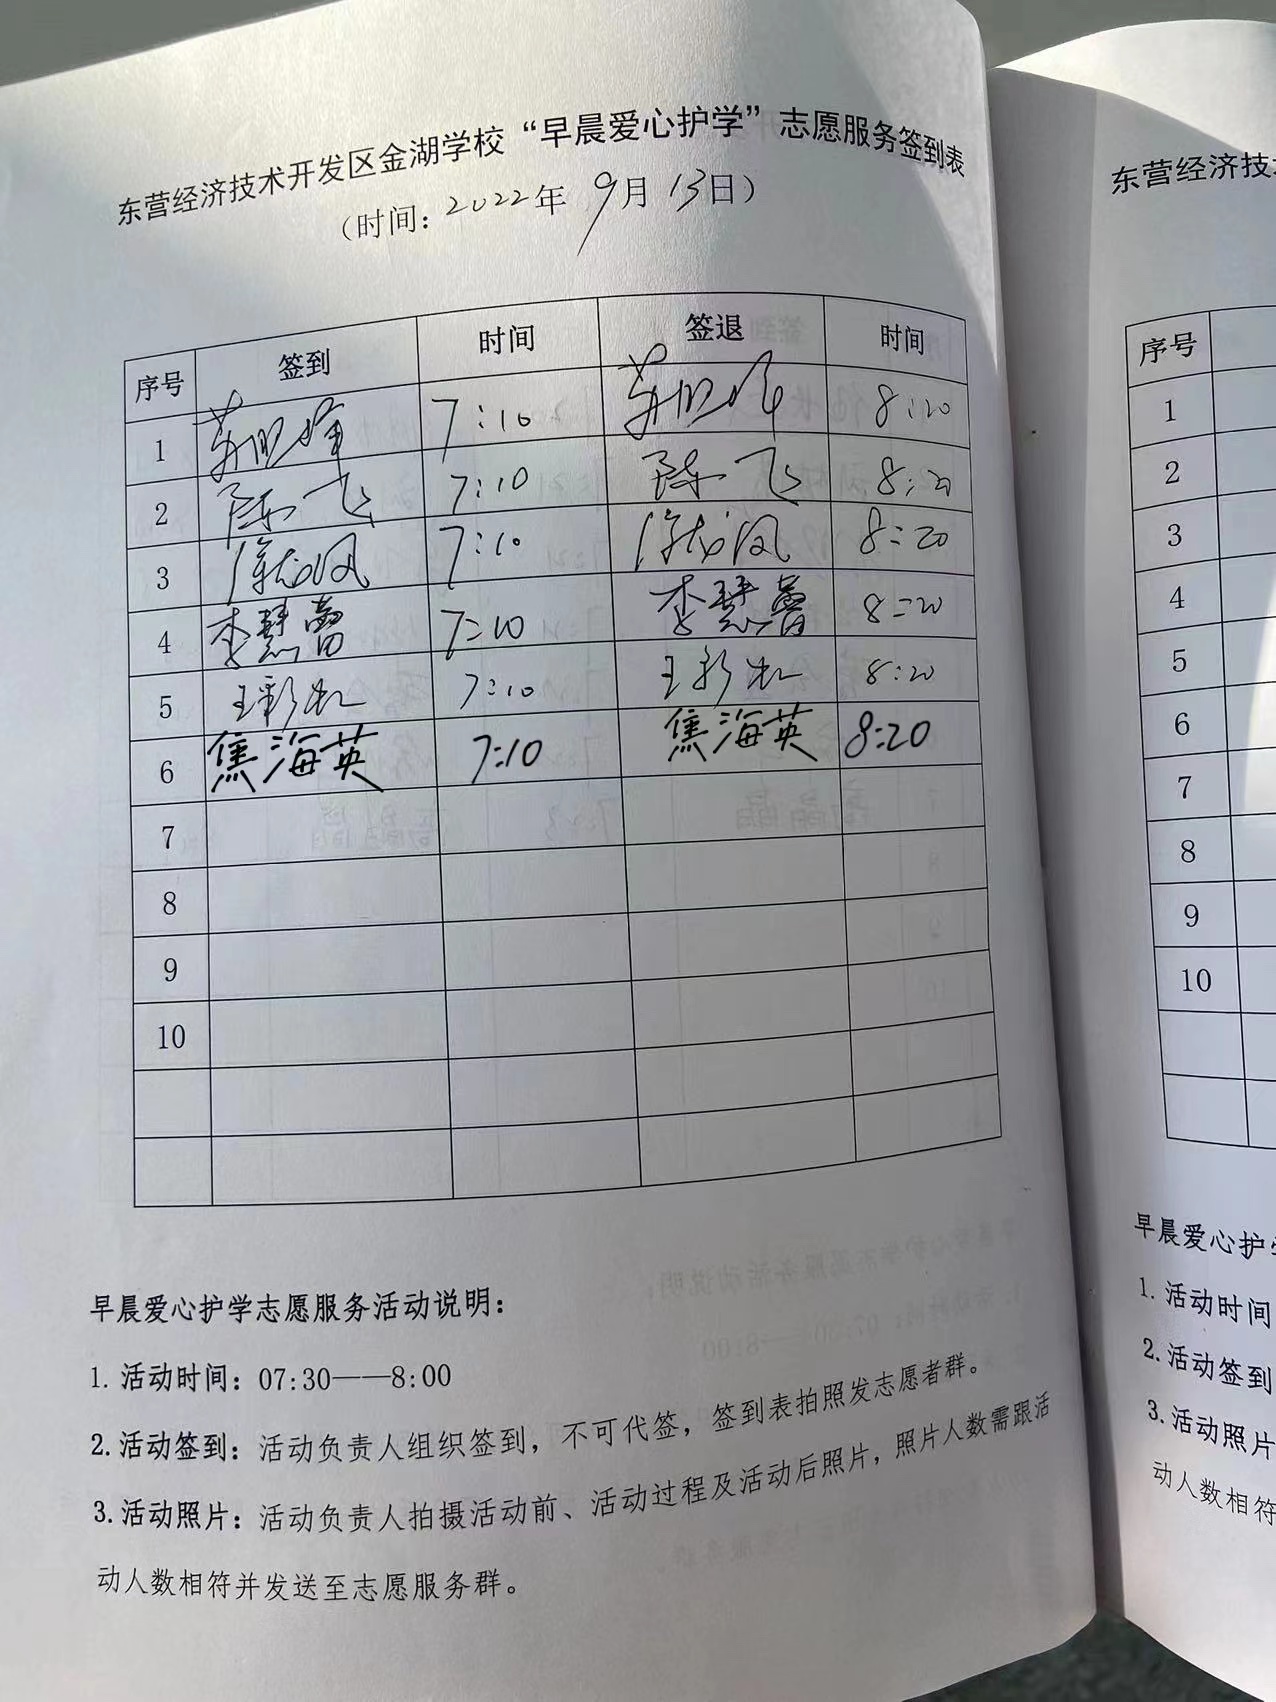 东营经济技术开发区金湖学校“早晨爱心护学”志愿服务签到表
（时间：2022年 9月 13日）
序号 签到 时间 签退 时间
1 7:10 8:20
2 陈飞 7:10 陈飞 8:20
3 7:10 8:20
4 李慧蕾 7:10 李慧蕾 8:20
5 王彩虹 7:10 王彩虹 8:20
6 焦海英 7:10 焦海英 8:20
7
8
9
10
早晨爱心护学志愿服务活动说明：
1.活动时间：07:30——8:00
2.活动签到：活动负责人组织签到，不可代签，签到表拍照发志愿者群。
3.活动照片：活动负责人拍摄活动前、活动过程及活动后照片，照片人数需跟活
动人数相符并发送至志愿服务群。
东营经济技
序号
1
2
3
4
5
6
7
8
9
10
早晨爱心护
1.活动时间
2.活动签到
3.活动照片
动人数相符